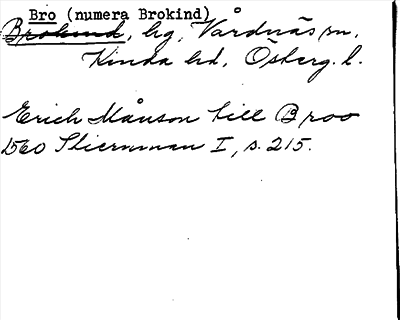 Bro (numera Brokind)
Brokind, hg, Vårdnäs sn.
Kinda hd, Österg. l.
Erich Månson till Broo
1560 Stiernman I, s. 215.